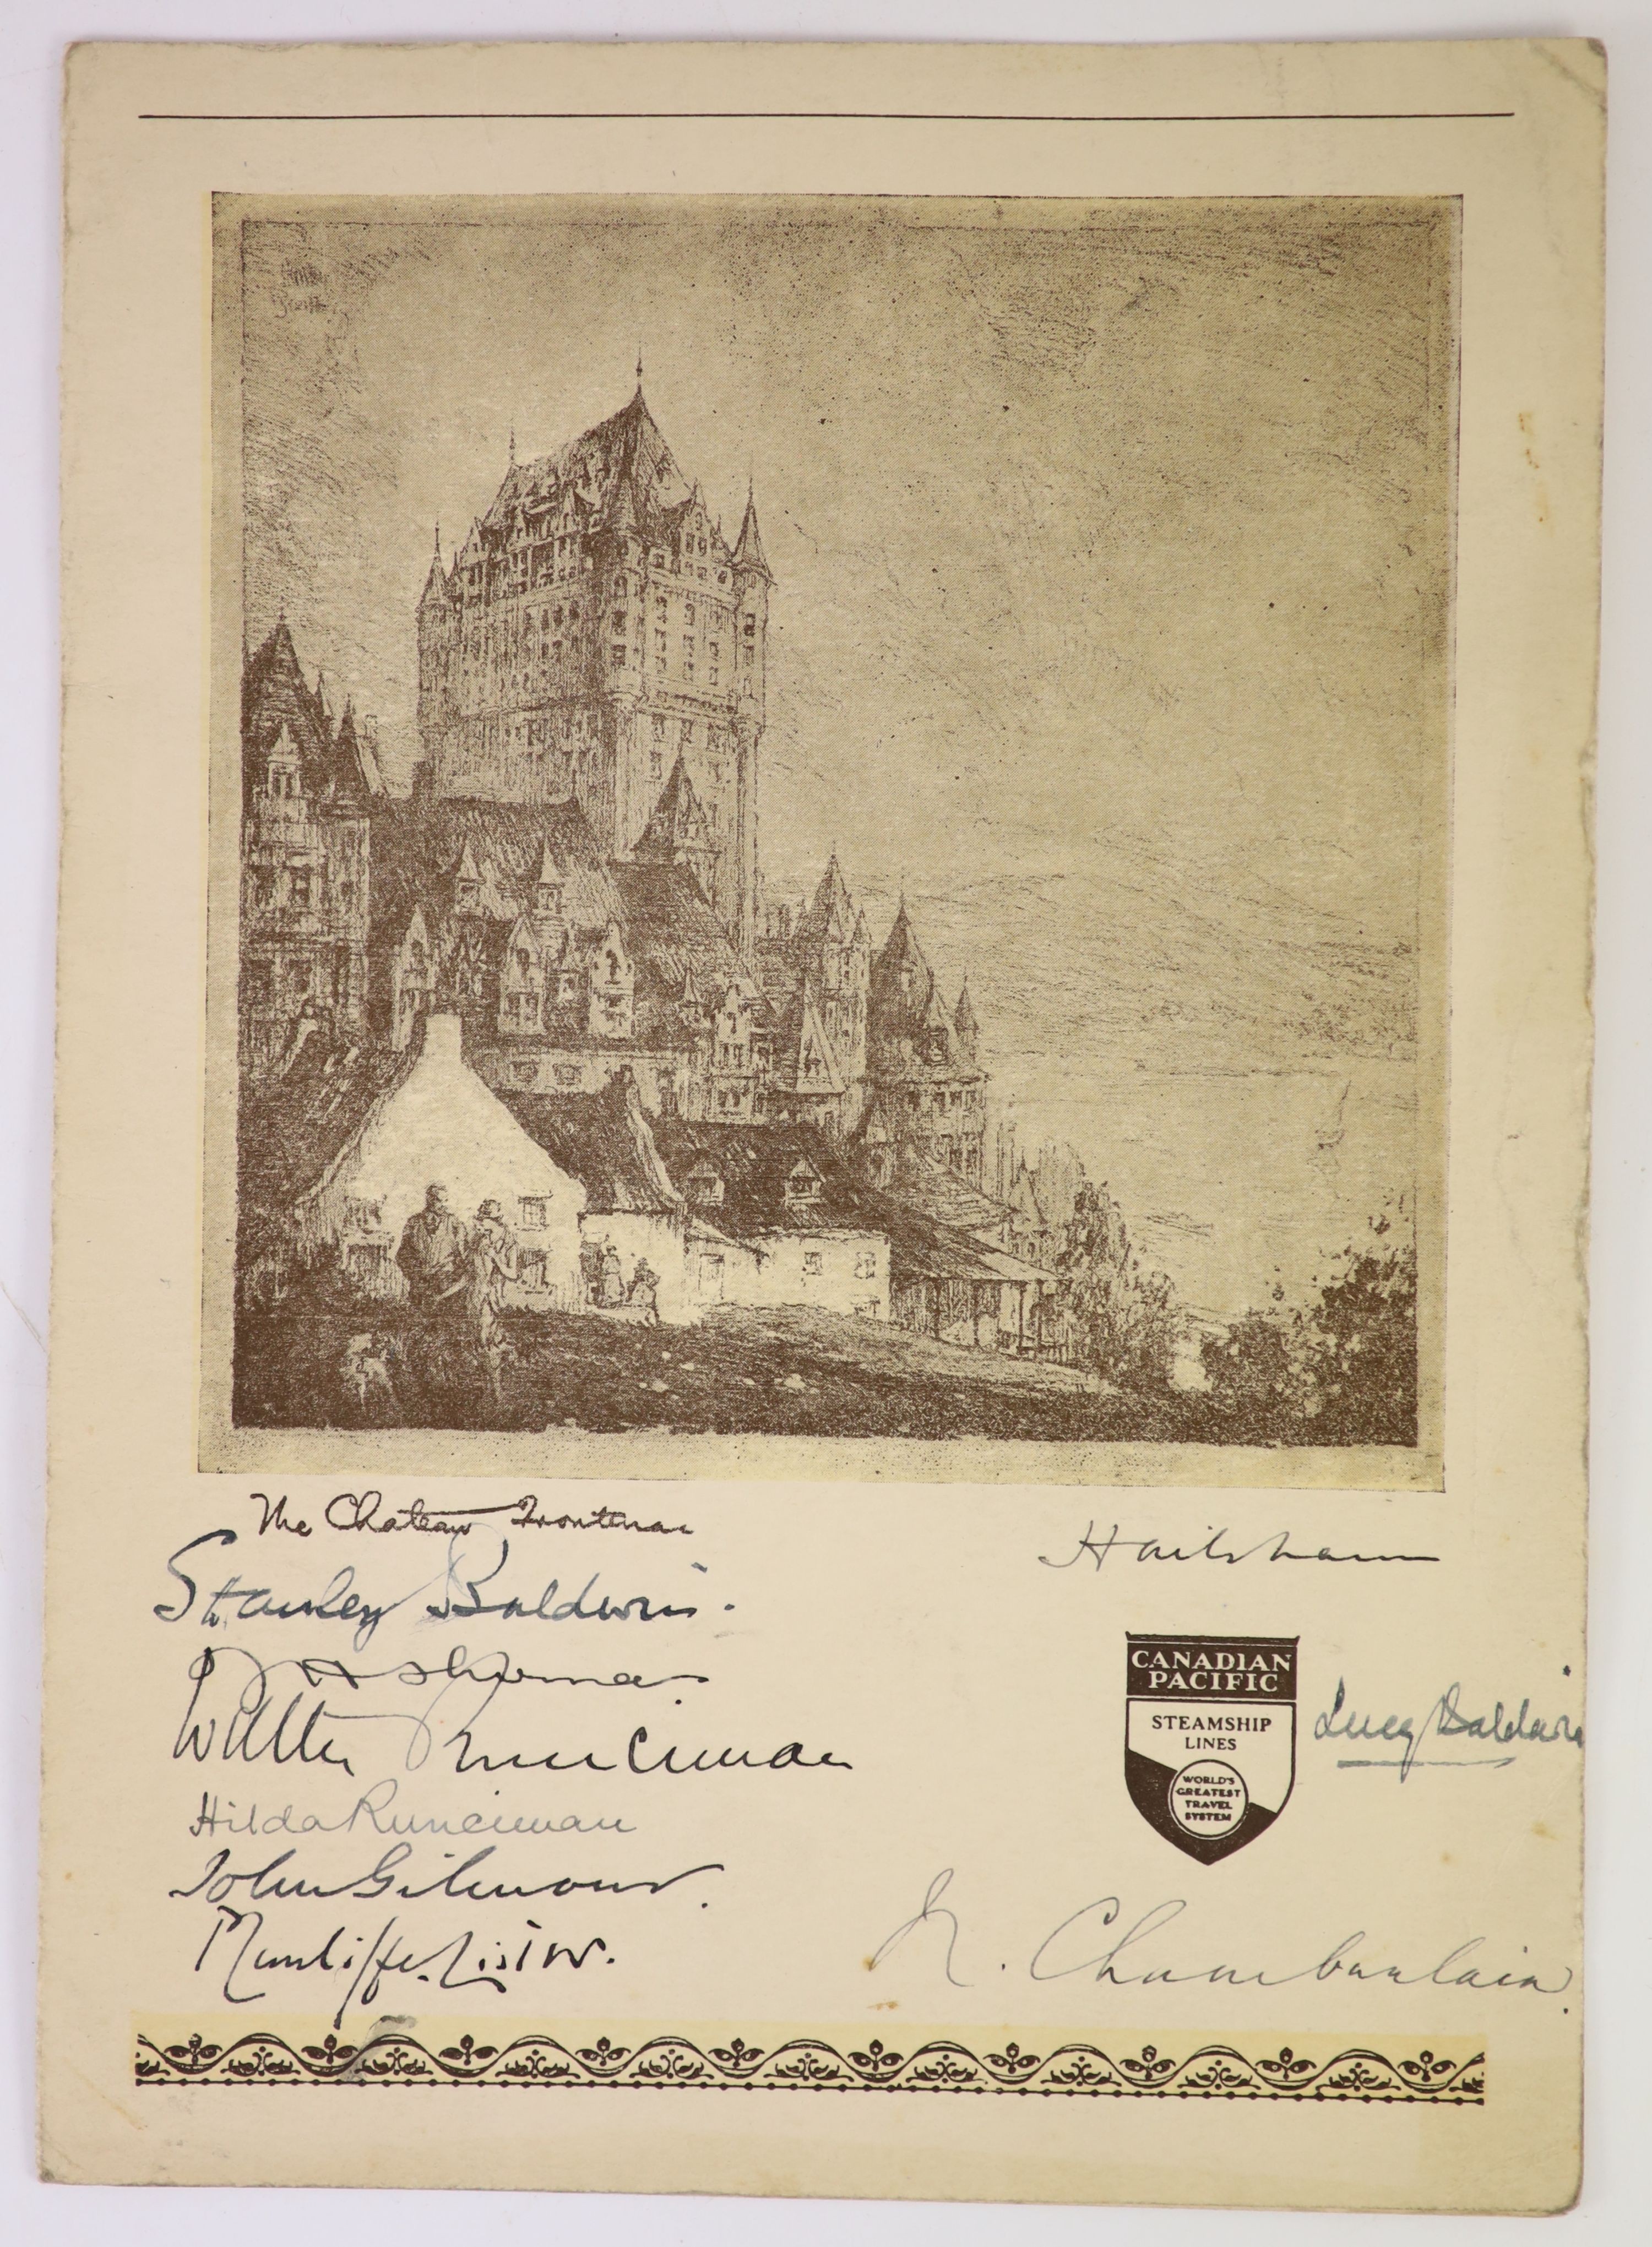 The Chateau Frontenac
Stanley Baldwin.
J H Thomas.
Walter Runciman
Hilda Runciman
John Gilmour.
P Cunliffe-Lister.
Hailsham
CANADIAN
PACIFIC
STEAMSHIP
LINES
WORLD'S
GREATEST
TRAVEL
SYSTEM
Lucy Baldwin
N. Chamberlain.